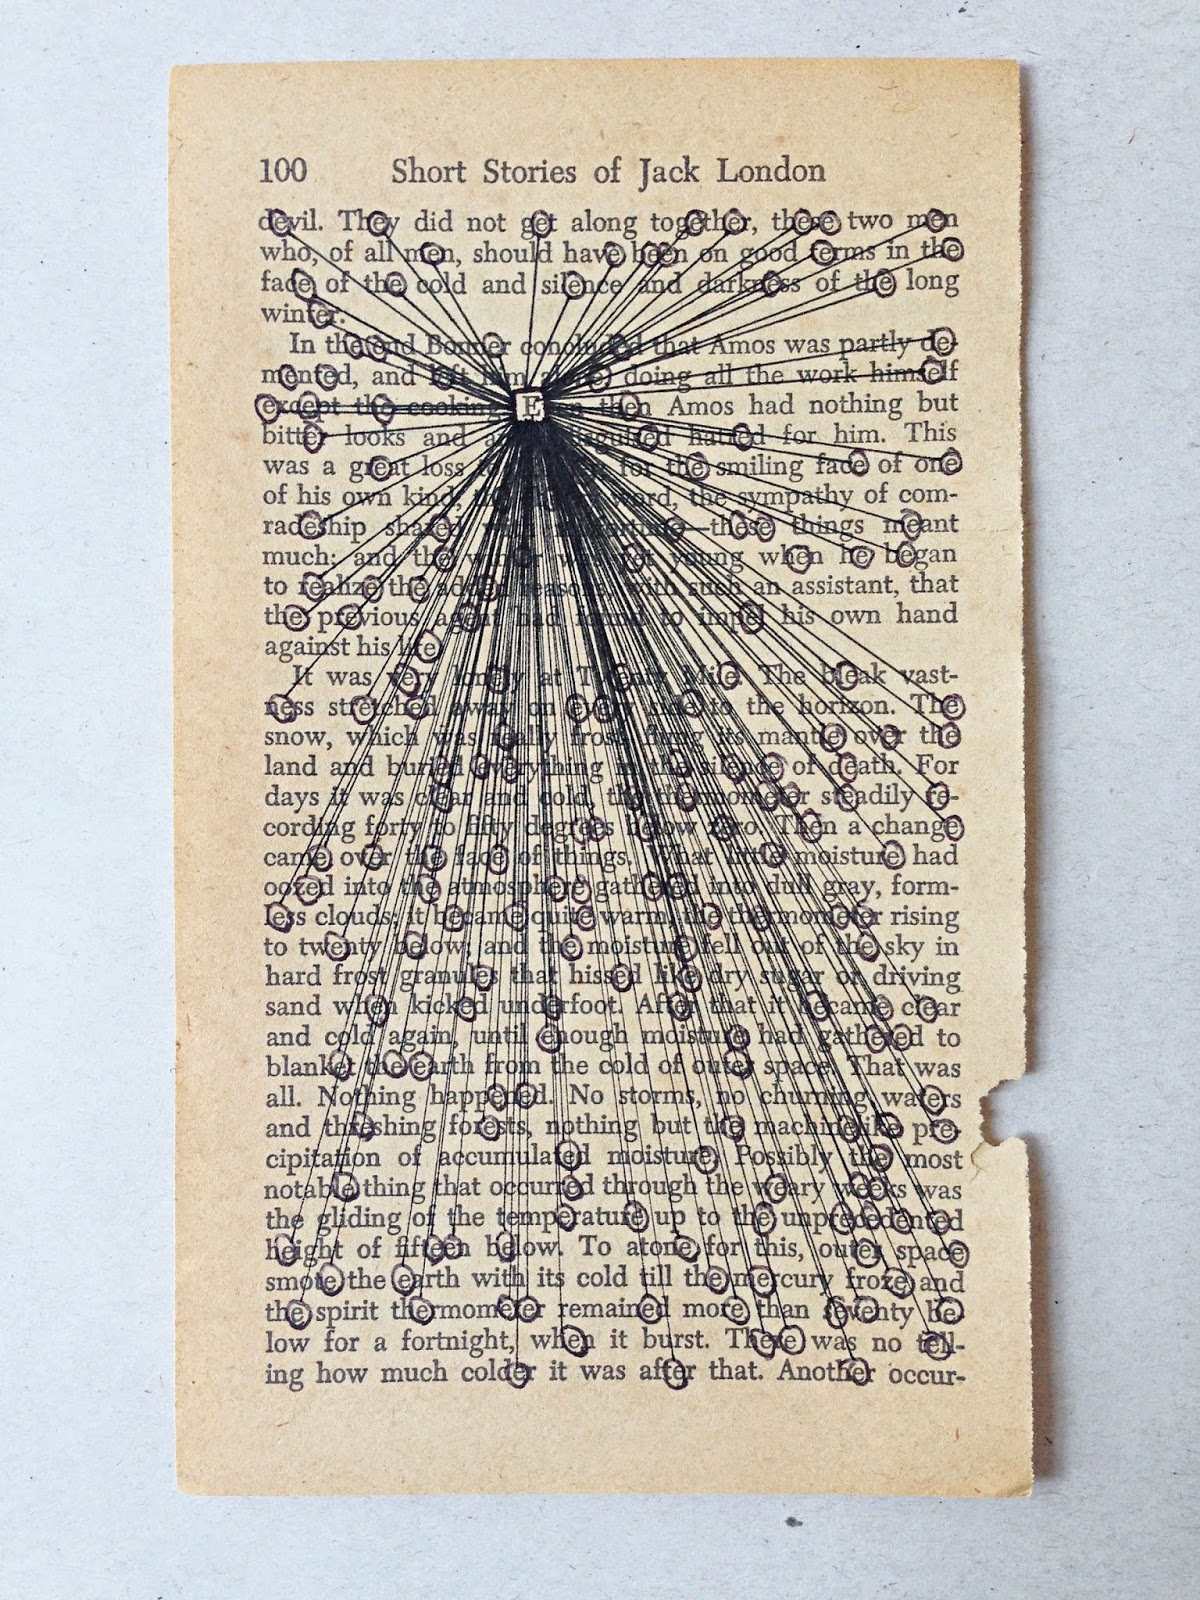 100 Short Stories of Jack London
devil. They did not get along together, these two men
who, of all men, should have been on good terms in the
face of the cold and silence and darkness of the long
winter.
In the end Bonner concluded that Amos was partly de-
mented, and left him alone, doing all the work himself
except the cooking. Even then Amos had nothing but
bitter looks and an undisguised hatred for him. This
was a great loss to for the smiling face of one
of his own kind, the word, the sympathy of com-
radeship shared with misfortune—these things meant
much; and the winter was yet young when he began
to realize the added reasons, with such an assistant, that
the previous agent had found to impel his own hand
against his life.
It was very lonely at Twenty Mile. The bleak vast-
ness stretched away on every side to the horizon. The
snow, which was really frost, flung its mantle over the
land and buried everything in the silence of death. For
days it was clear and cold, the thermometer steadily re-
cording forty to fifty degrees below zero. Then a change
came over the face of things. What little moisture had
oozed into the atmosphere gathered into dull gray, form-
less clouds; it became quite warm, the thermometer rising
to twenty below; and the moisture fell out of the sky in
hard frost granules that hissed like dry sugar or driving
sand when kicked underfoot. After that it became clear
and cold again, until enough moisture had gathered to
blanket the earth from the cold of outer space. That was
all. Nothing happened. No storms, no churning waters
and threshing forests, nothing but the machinelike pre-
cipitation of accumulated moisture. Possibly the most
notable thing that occurred through the weary weeks was
the gliding of the temperature up to the unprecedented
height of fifteen below. To atone for this, outer space
smote the earth with its cold till the mercury froze and
the spirit thermometer remained more than seventy be-
low for a fortnight, when it burst. There was no tell-
ing how much colder it was after that. Another occur-